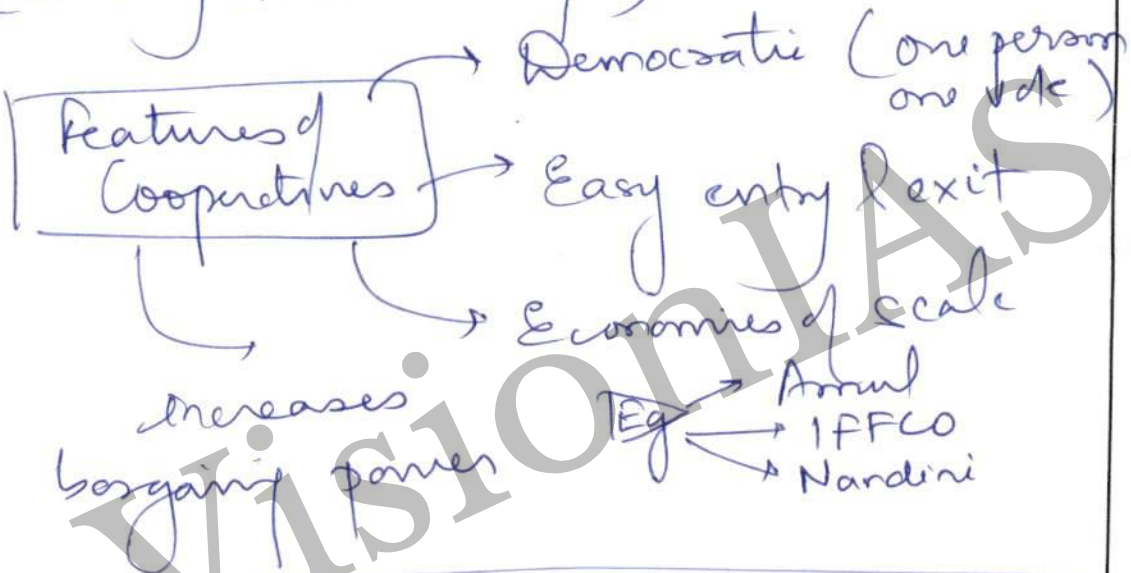 Features of
Cooperatives
Democratic (one person
one vote)
Easy entry & exit
Economies of scale
increases
bargaing power
Eg
Amul
IFFCO
Nandini
VisionIAS